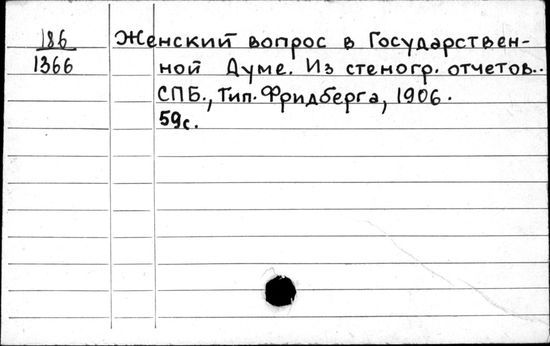 186 Женский вопрос в Государствен-
1366 ной Думе. Из стеногр. отчетов..
СПБ., Тип. Фридберга, 1906.
59с.